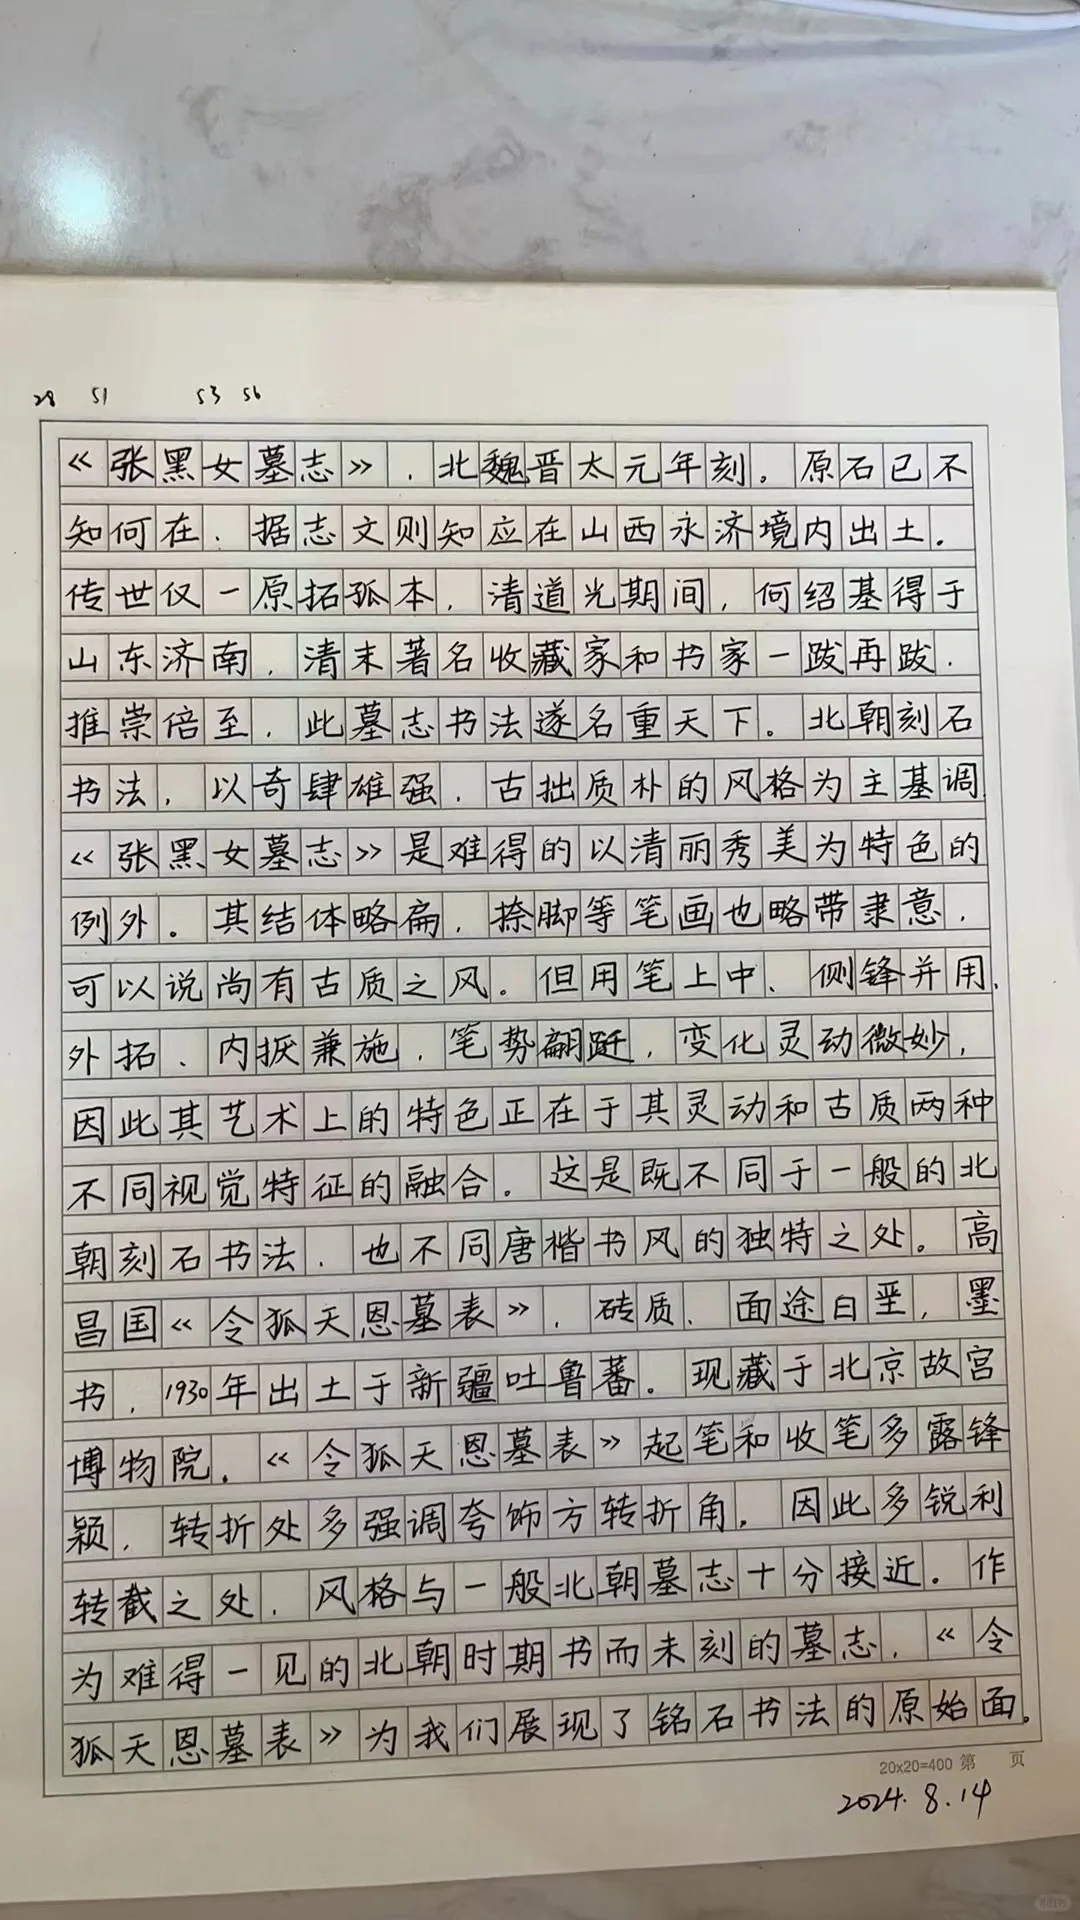 28 51 53 56
《张黑女墓志》，北魏晋太元年刻。原石已不
知何在、据志文则知应在山西永济境内出土。
传世仅一原拓孤本，清道光期间，何绍基得于
山东济南，清末著名收藏家和书家一跋再跋，
推崇倍至，此墓志书法遂名重天下。北朝刻石
书法，以奇肆雄强，古拙质朴的风格为主基调，
《张黑女墓志》是难得的以清丽秀美为特色的
例外。其结体略扁，捺脚等笔画也略带隶意，
可以说尚有古质之风。但用笔上中、侧锋并用，
外拓、内掞兼施，笔势翩跹，变化灵动微妙，
因此其艺术上的特色正在于其灵动和古质两种
不同视觉特征的融合。这是既不同于一般的北
朝刻石书法，也不同唐楷书风的独特之处。高
昌国《令狐天恩墓表》，砖质、面途白垩，墨
书，1930年出土于新疆吐鲁蕃。现藏于北京故宫
博物院。《令狐天恩墓表》起笔和收笔多露锋
颖，转折处多强调夸饰方转折角。因此多锐利
转截之处，风格与一般北朝墓志十分接近。作
为难得一见的北朝时期书而未刻的墓志，《令
狐天恩墓表》为我们展现了铭石书法的原始面。
20x20=400 第 页
2024.8.14